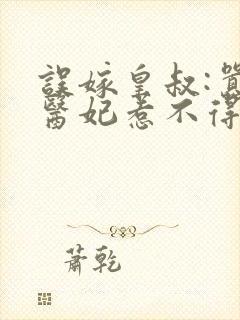 誤嫁皇叔:
醫妃惹不得
蕭乾